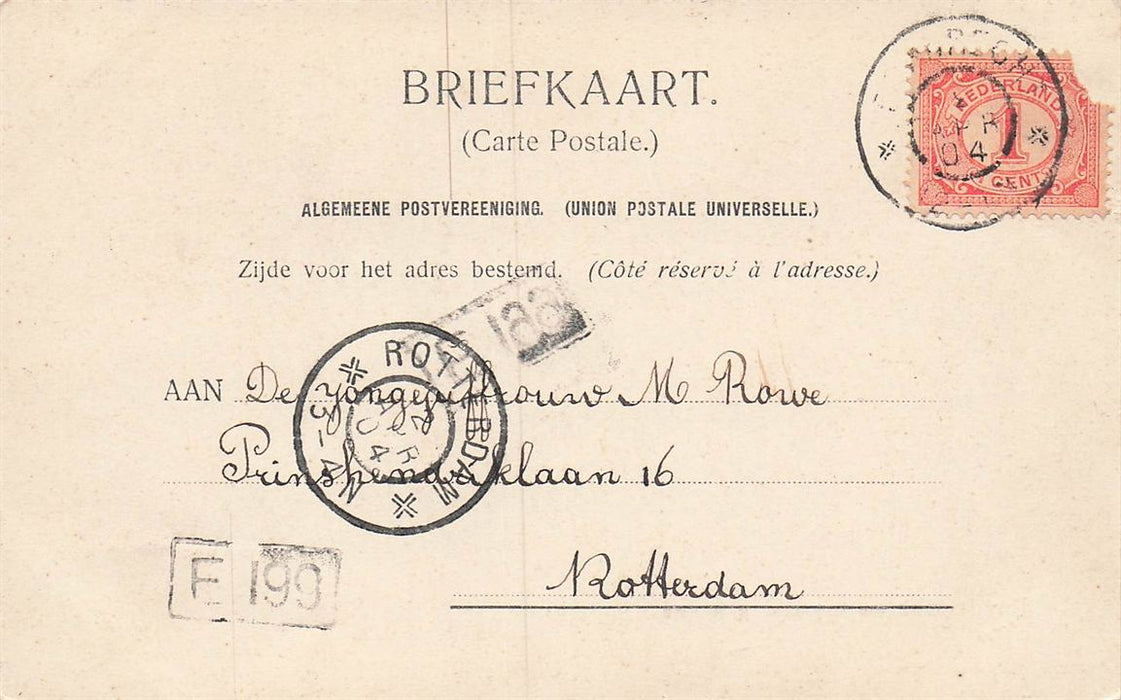 BRIEFKAART.
(Carte Postale.)
ALGEMEENE POSTVEREENIGING. (UNION POSTALE UNIVERSELLE.)
Zijde voor het adres bestemd. (Côté réservé à l'adresse.)
NEDERLAND
1
CENT
APR
04
188
ROTTERDAM
2
APR
04
3-4 N
AAN De Jongejufvrouw M Rowe
Prinshendriklaan 16
Rotterdam
E 199